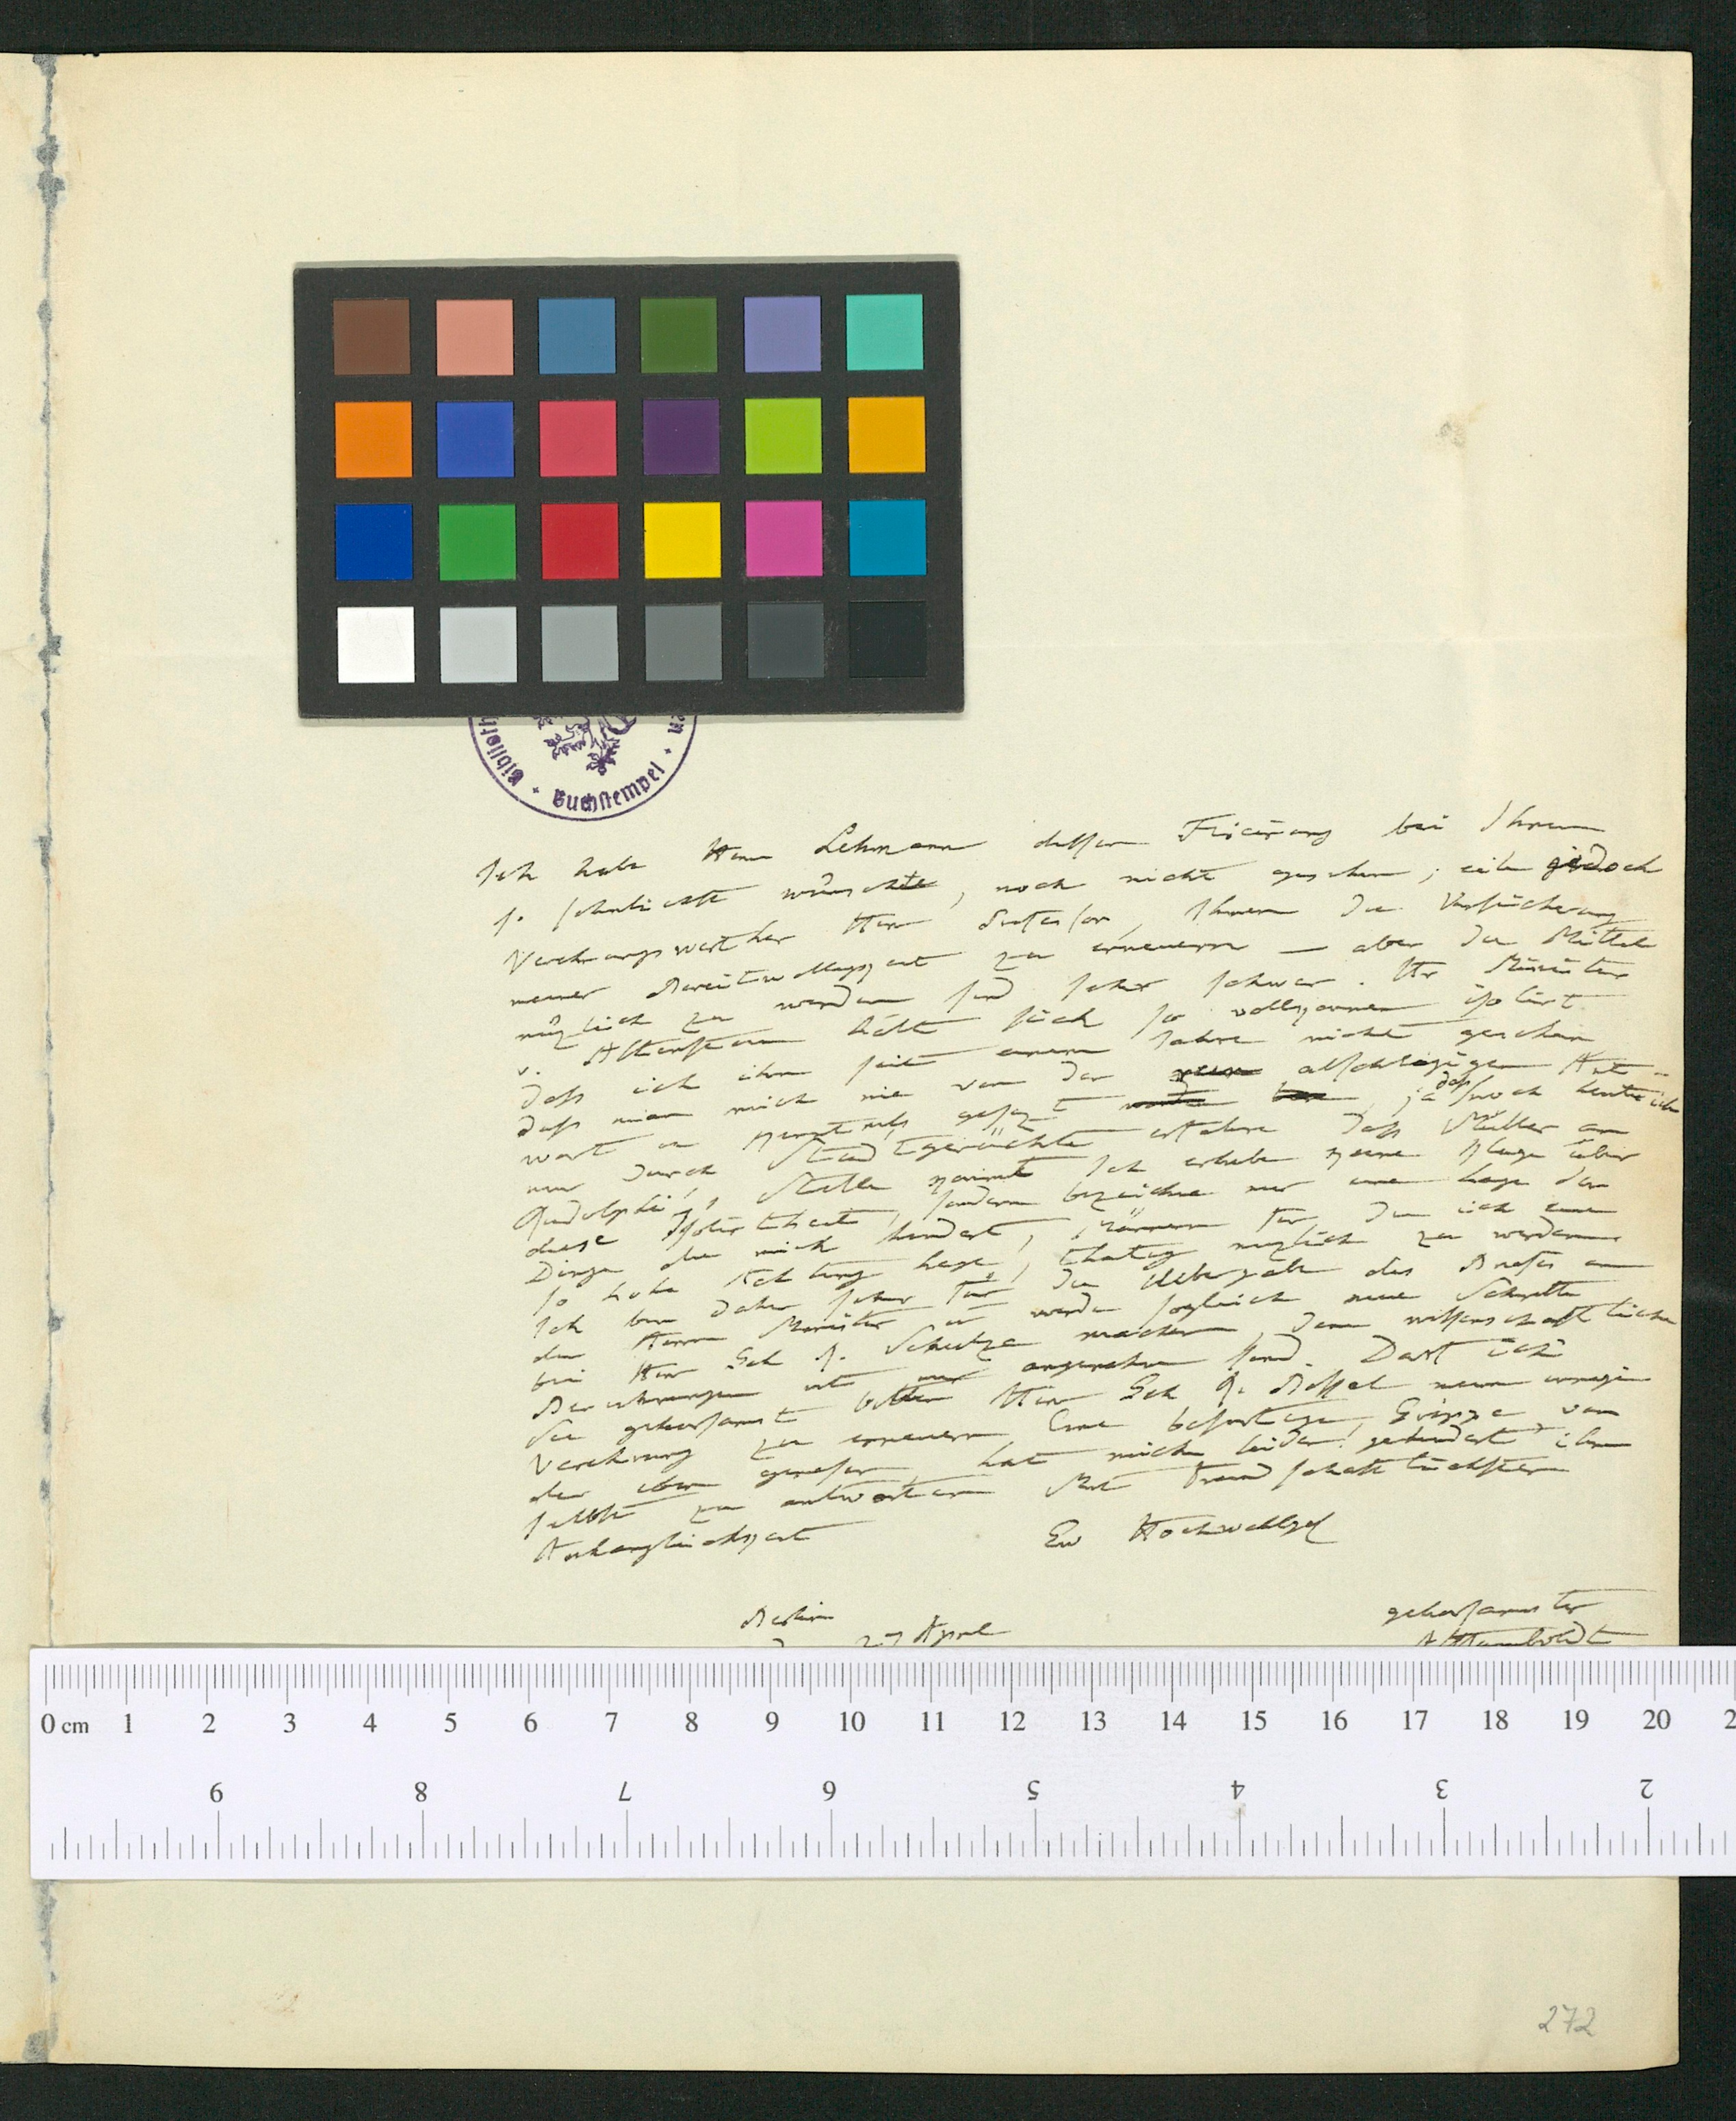 Biblioth
Buchstempel
Ich habe Herrn Lehmann dessen Fixirung bei Ihnen
so sehnlichst wünschte, noch nicht gesehen; eile jedoch
Verehrungswerther Herr Professor, Ihnen die Versicherung
meiner Bereitwilligkeit zu erneuern — aber die Mittel
nüzlich zu werden sind sehr schwer. Hr Minister
v. Altenstein hält sich so vollkommen isolirt
dass ich ihn seit einem Jahre nicht gesehen
dass man mich nie von der abschlägigen Ant-
wort in Kenntniss gesezt ja dass noch heute ich
nur durch Stadtgerüchte erfahre dass Müller an
Rudolphi's Stelle kommt Ich erhebe keine Klage über
diese Isolirtheit, sondern bezeichne nur eine Lage der
Dinge die mich hindert, Männern für die ich eine
so hohe Achtung hege, thätig nüzlich zu werden
Ich bin daher sehr für die Uebergabe des Briefes an
den Herrn Minister u werde sogleich neue Schritte
bei Herr Geh R. Schulze machen, dem wissenschaftliche
Bereicherungen angenehm sind. Darf ich
Sie gehorsamst bitten Herr Geh R. Bessel meine innige
Verehrung zu erneuern Eine Grippe von
der eben genesen hat mich leider! gehindert ihm
selbst zu antworten Mit freundschaftlichster
Anhänglichkeit
Ew Hochwohlgeb
gehorsamster
AHumboldt
Berlin
27 April
0 cm 1 2 3 4 5 6 7 8 9 10 11 12 13 14 15 16 17 18 19 20 2
9 8 7 6 5 4 3 2
272